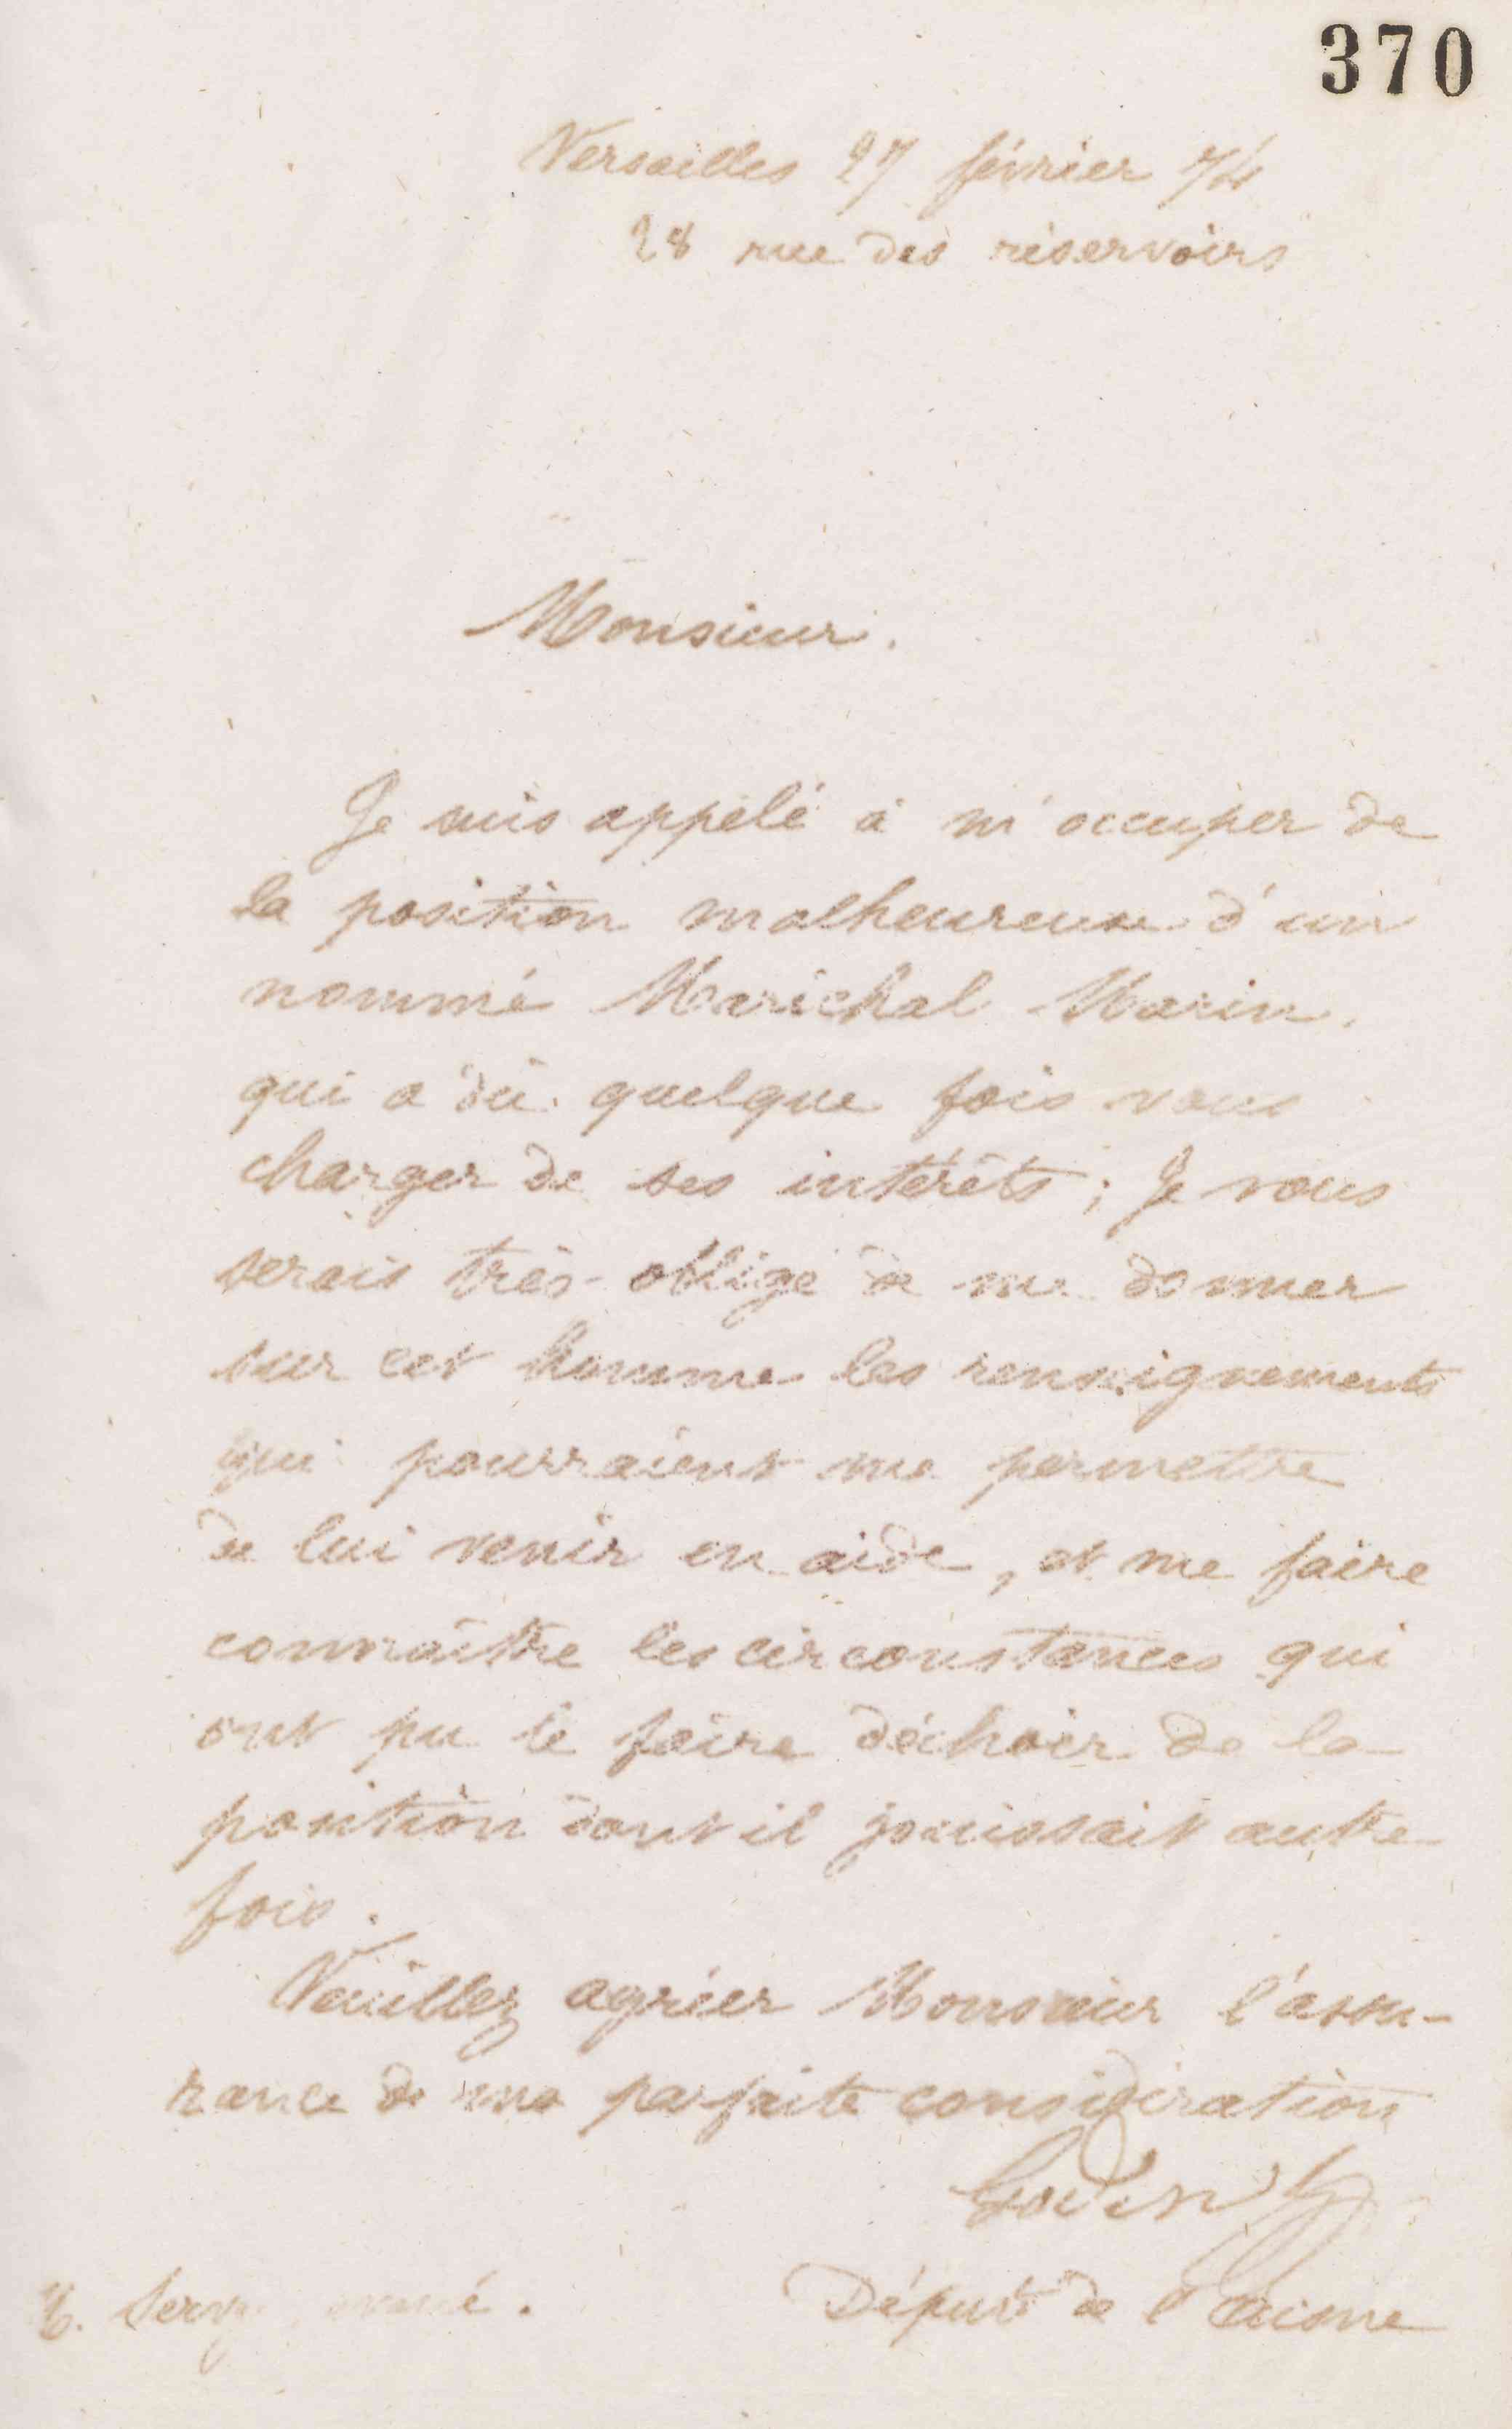 370
Versailles 27 février 74
28 rue des réservoirs
Monsieur.
Je suis appelé à m'occuper de
la position malheureuse d'un
nommé Maréchal Marin.
qui a dû quelque fois vous
charger de ses intérêts ; Je vous
serais très obligé de me donner
sur cet homme les renseignements
qui pourraient me permettre
de lui venir en aide, et me faire
connaître les circonstances qui
ont pu le faire déchoir de la
position dont il jouissait autre
fois.
Veuillez agréer Monsieur l'assu-
rance de ma parfaite considération
Godin
Député de l'aisne
M.